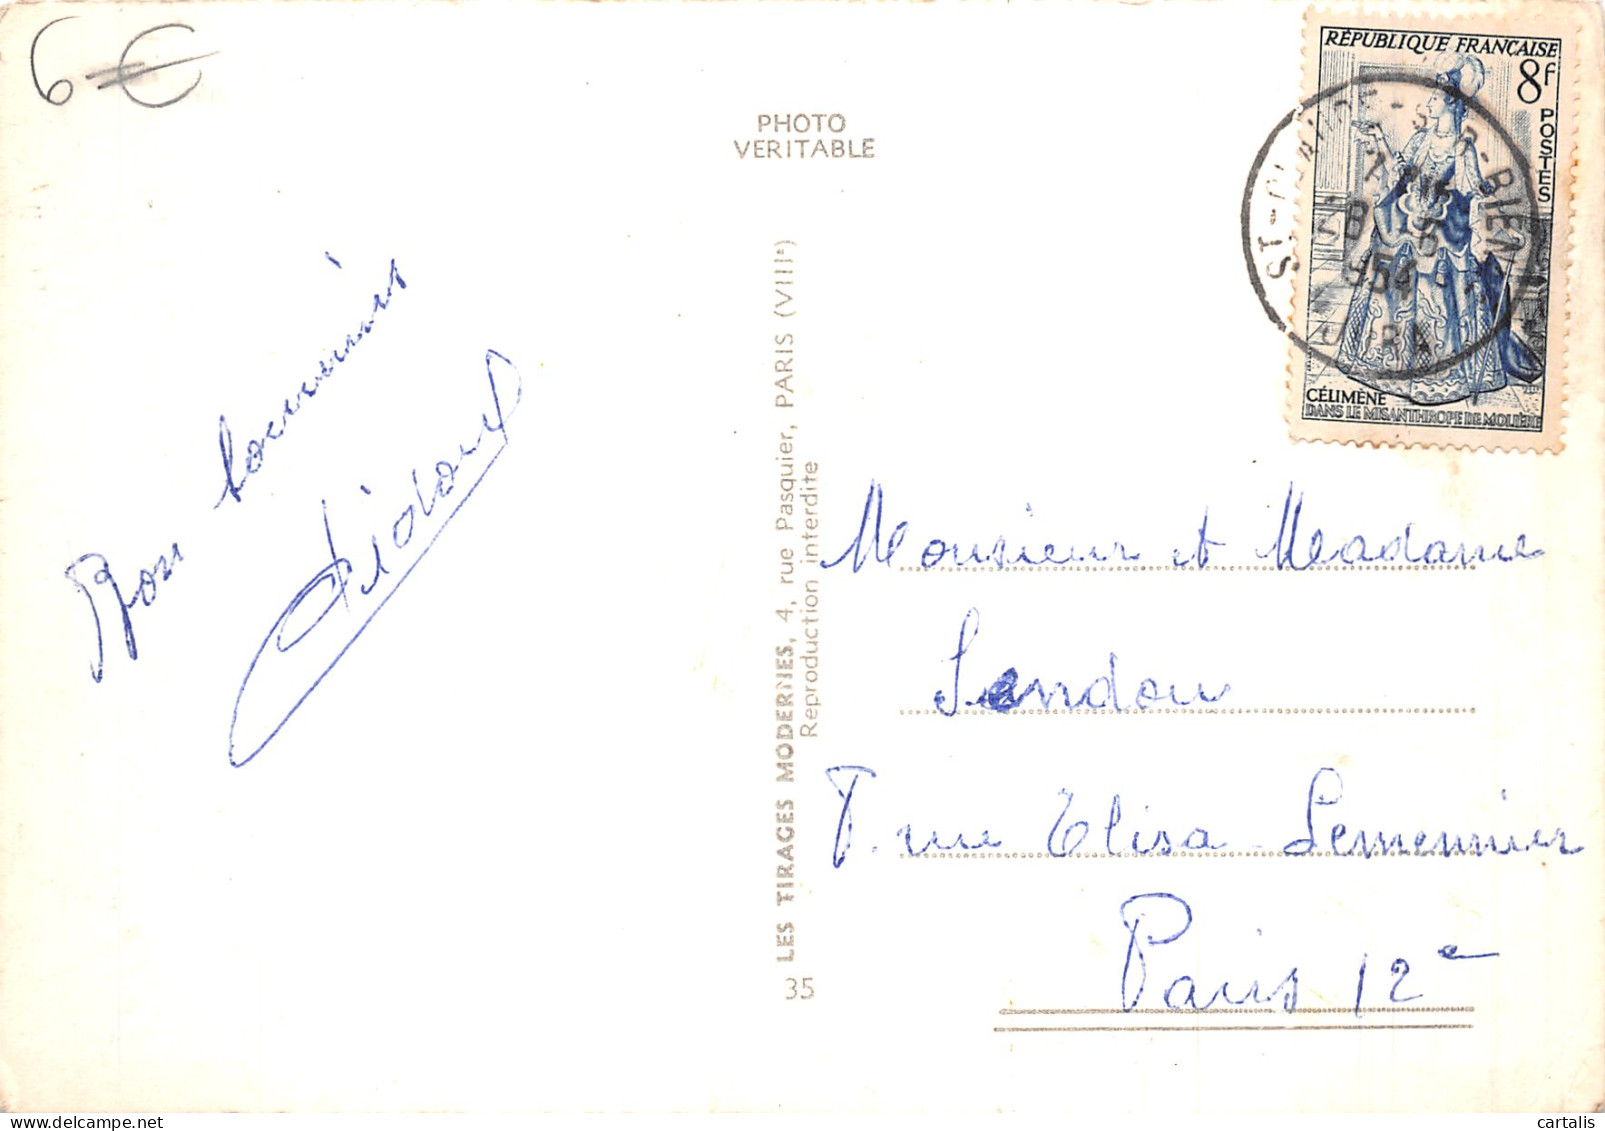 6 €
PHOTO
VERITABLE
RÉPUBLIQUE FRANÇAISE
8f
POSTES
ST-CLAUDE-S-R-BIENNE
28 -5
1954
JURA
CÉLIMÈNE
DANS LE MISANTHROPE DE MOLIÈRE
Bon souvenirs
LES TIRAGES MODERNES, 4, rue Pasquier, PARIS (VIIIe)
Reproduction interdite
35
Monsieur et Madame
Landou
7. rue Elisa Lemennier
Paris 12e
cartalis
www.delcampe.net